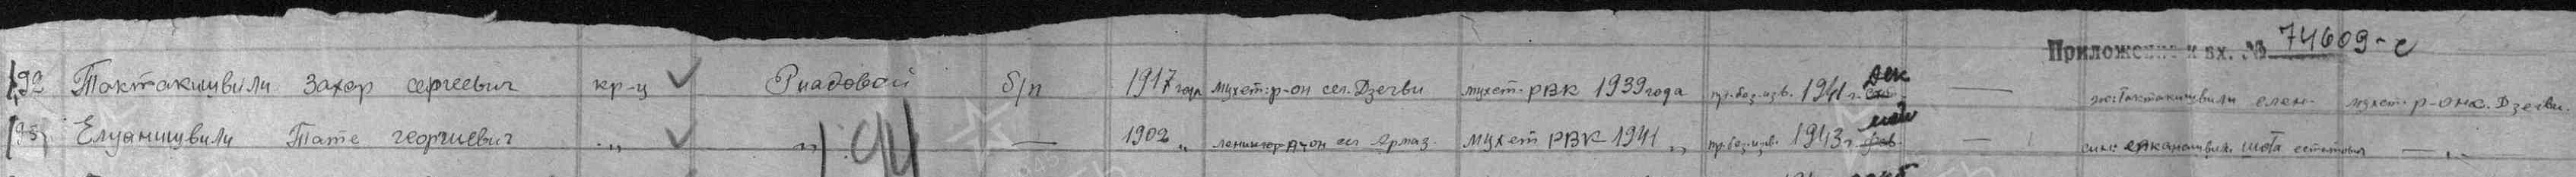 Приложение к вх. № 74609-с
192 Тактакишвили Захар сергеевич кр-ц ✓ Риадовой б/п 1917 года мцхет. р-он сел. Дзегви мцхет. РВК 1939 года пр. без. изв. 1941 г. дек — жо: Тактакишвили елен. мцхет. р-он с. Дзегви.
Елуанишвили Тате георгиевич „ ✓ „ — 1902 „ сел Армаз. мцхет РВК 1941 „ пр. без. изв. 1943 г. — син: шота — „ —
94